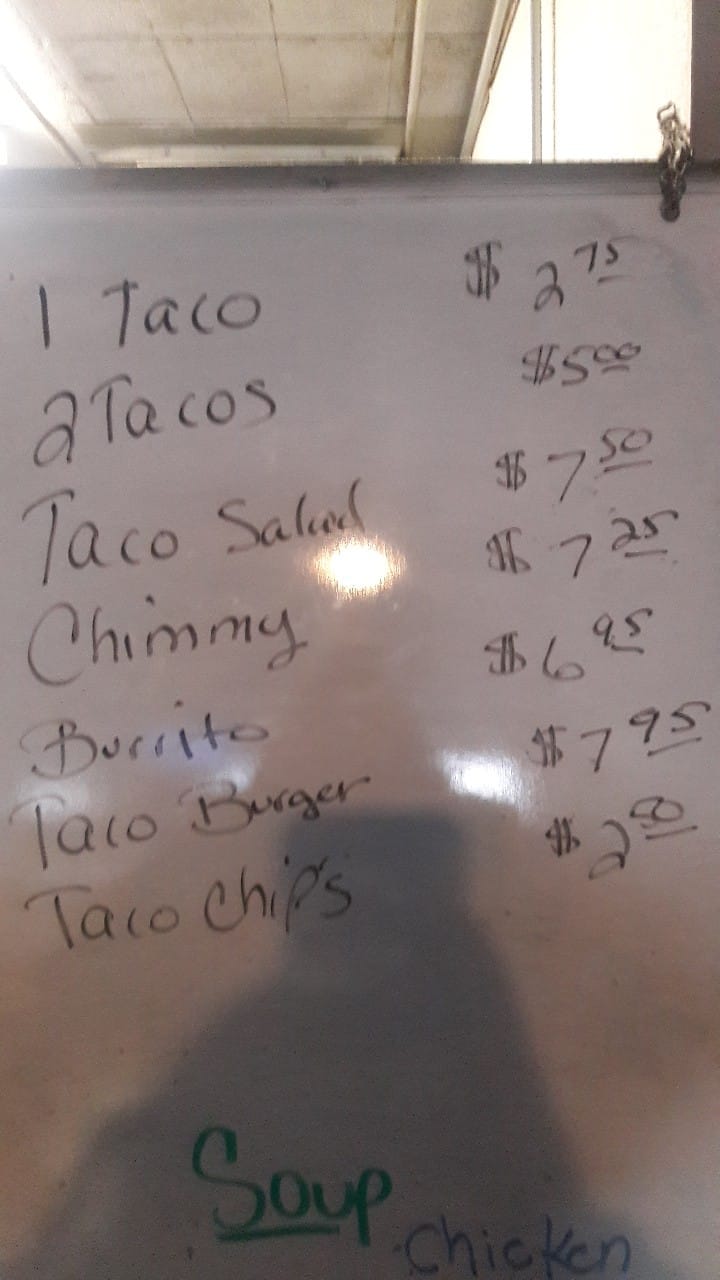 1 Taco $ 2 75
2 Tacos $5 00
Taco Salad $ 7 50
Chimmy $ 7 25
Burrito $ 6 95
Taco Burger $ 7 95
Taco Chips $ 2 50
Soup
Chicken